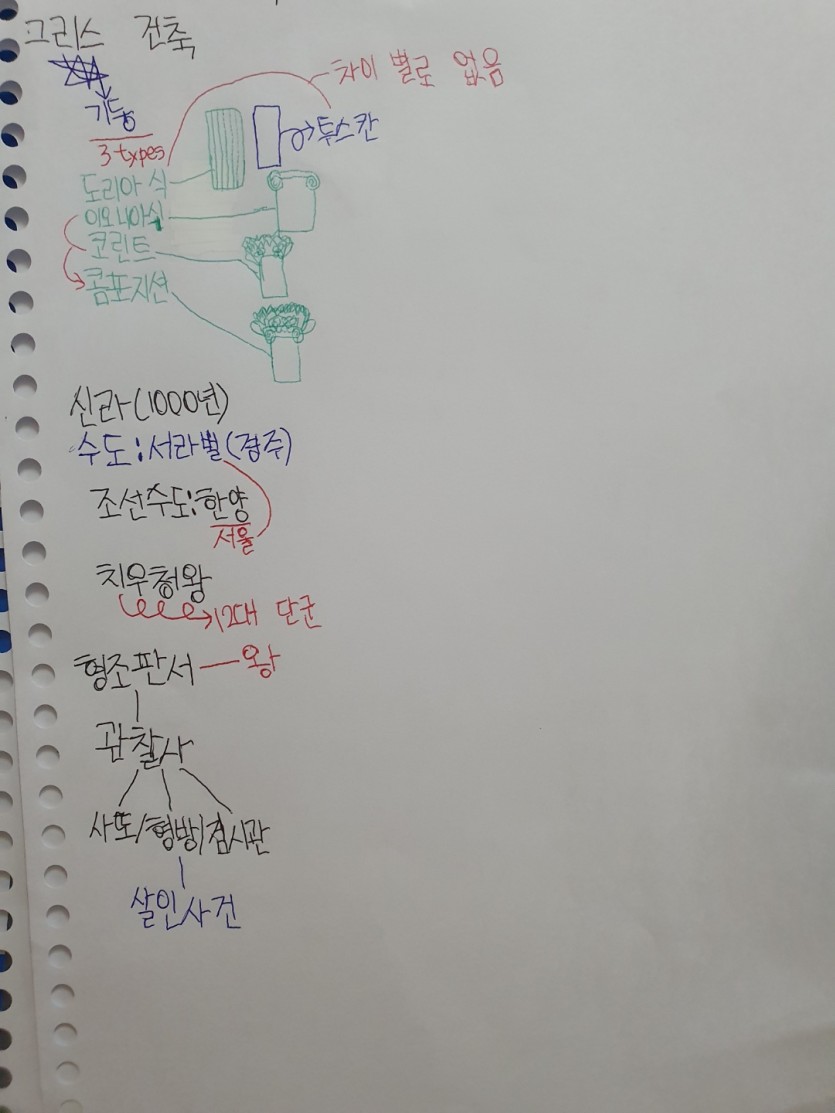 그리스 건축
차이 별로 없음
기둥
투스칸
3 types
도리아 식
이오니아식
코린트
콤포지션
신라(1000년)
수도:서라벌(경주)
조선수도:한양
서울
치우천왕
12대 단군
형조판서 — 왕
관찰사
사또/형방/검시관
살인사건